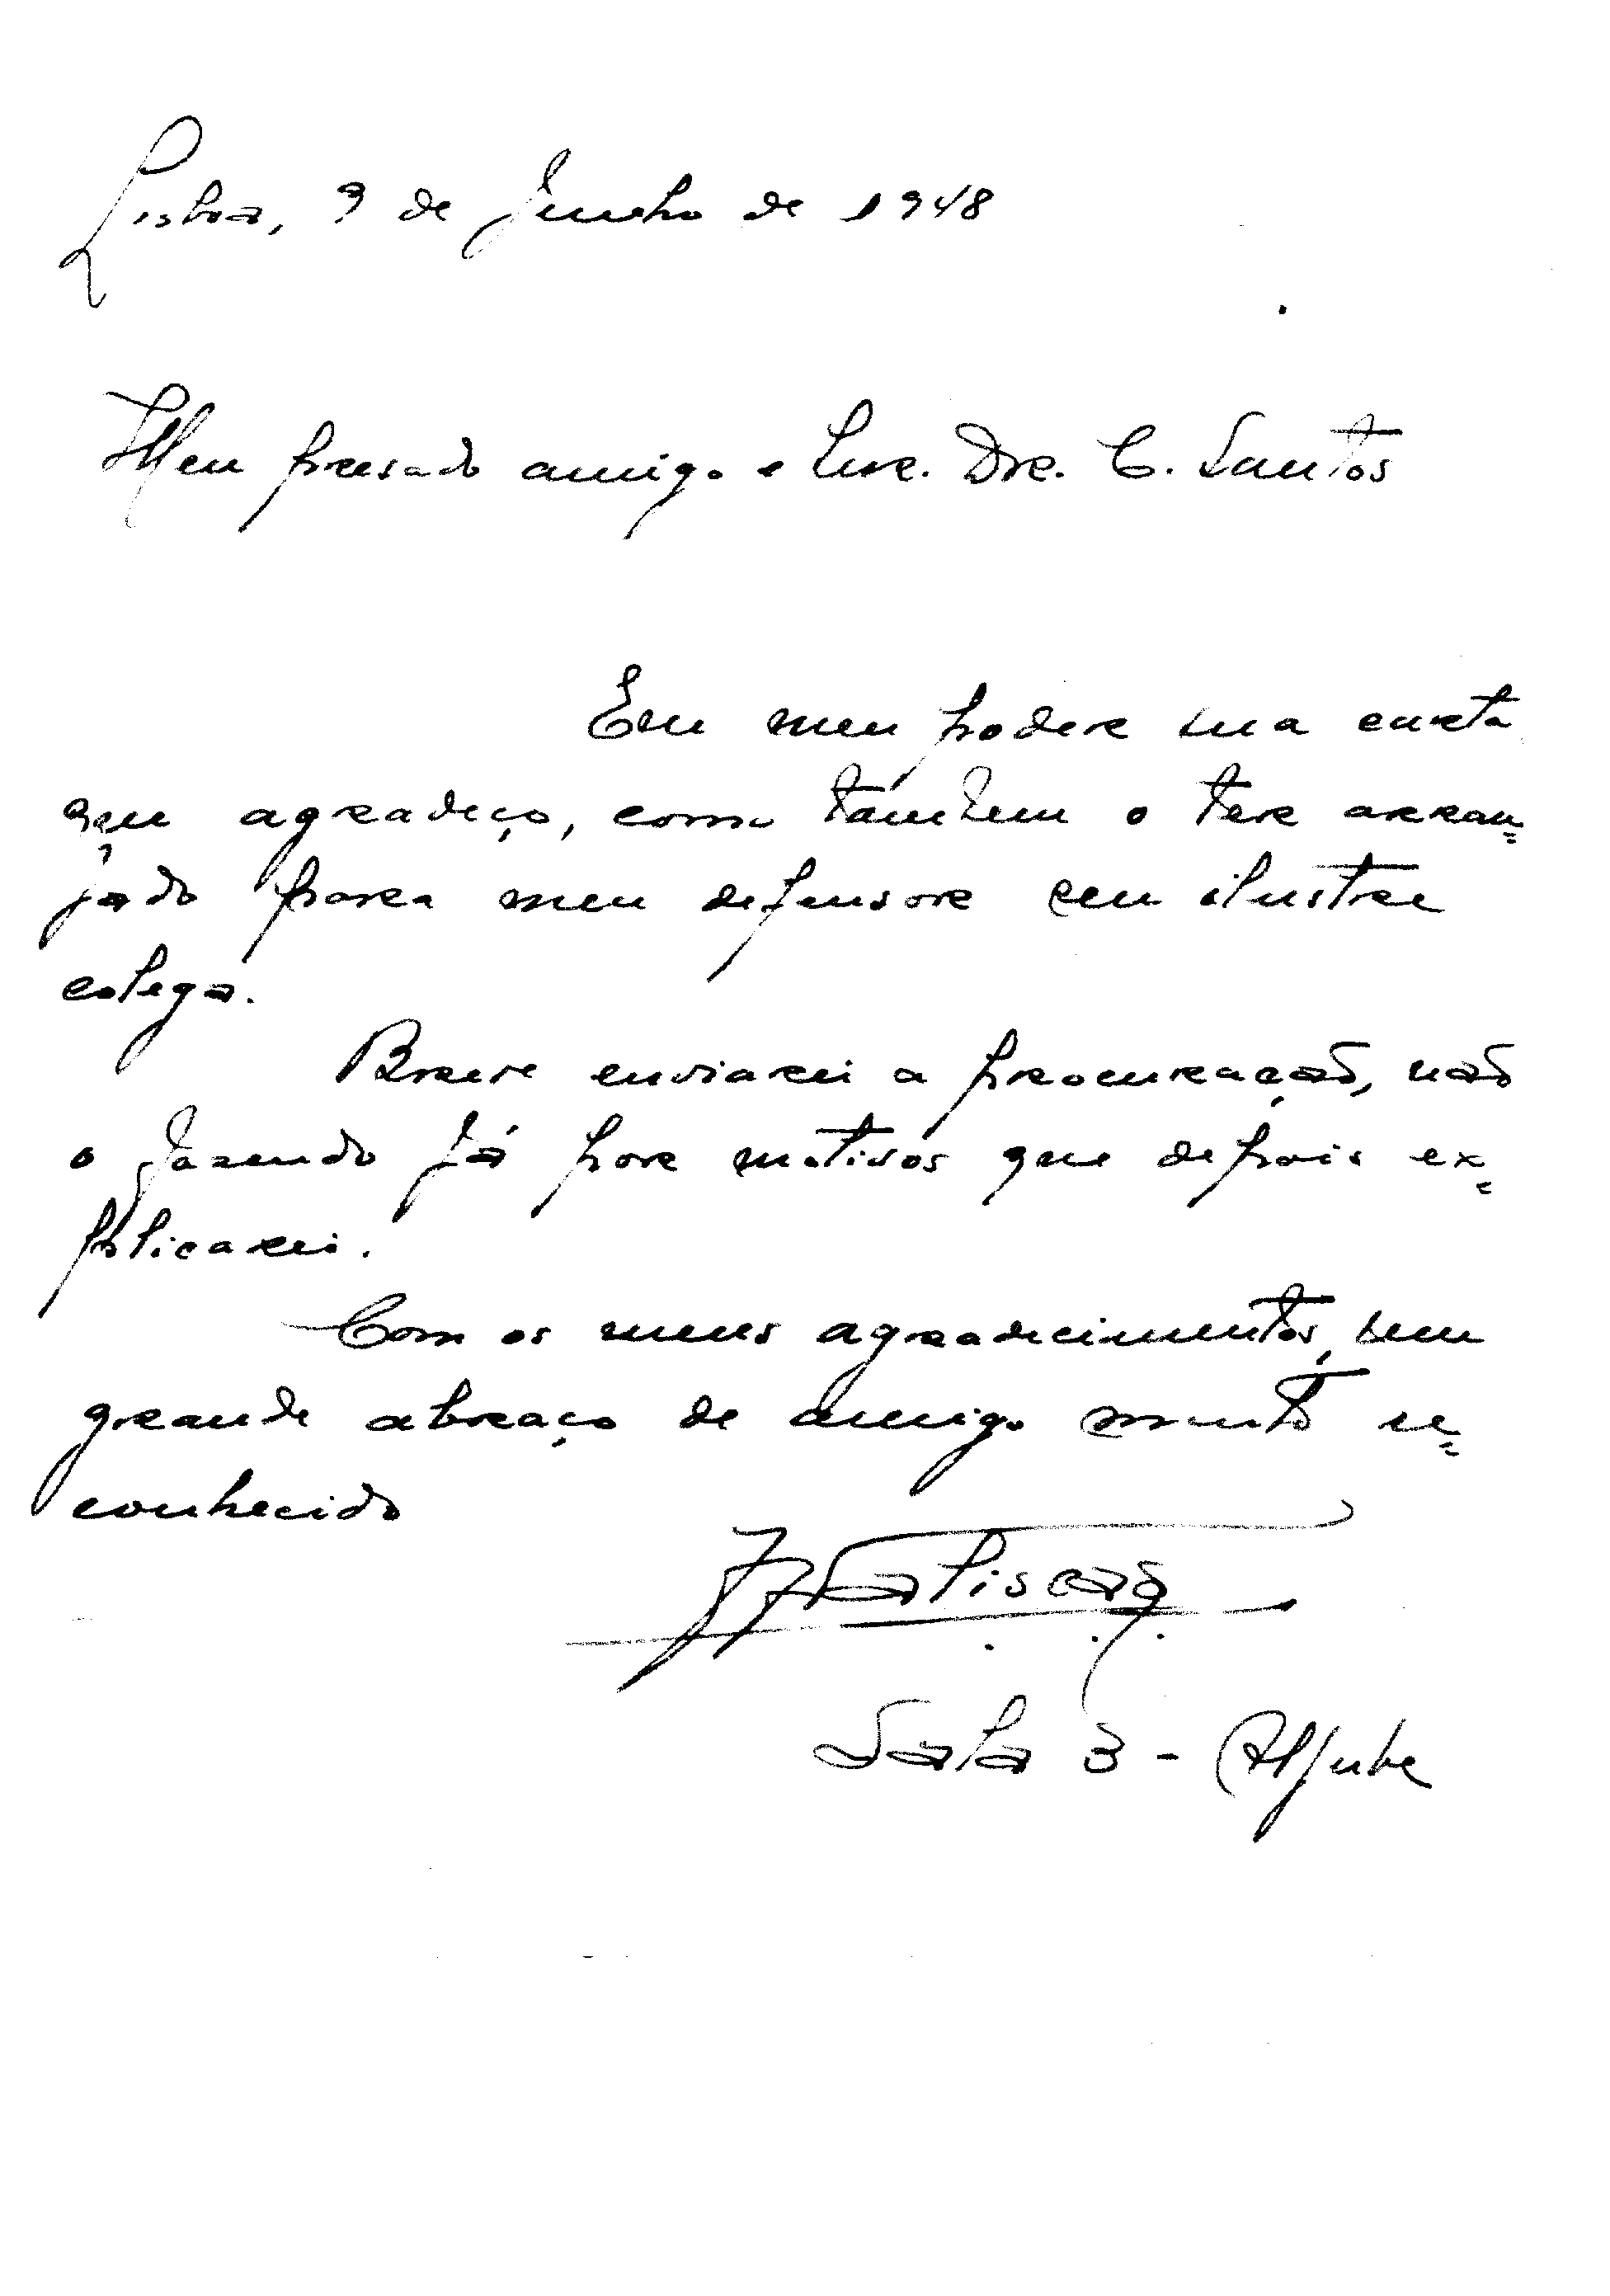 Lisboa, 9 de Junho de 1948
Meu presado amigo e Snr. Dr. C. Santos
Em meu poder sua carta
que agradeço, como também o ter arran=
jado para meu defensor seu ilustre
colega.
Breve enviarei a procuração, não
o fazendo já por motivos que depois ex=
plicarei.
Com os meus agradecimentos, um
grande abraço de amigo muito re=
conhecido
Sala 3 - Aljube